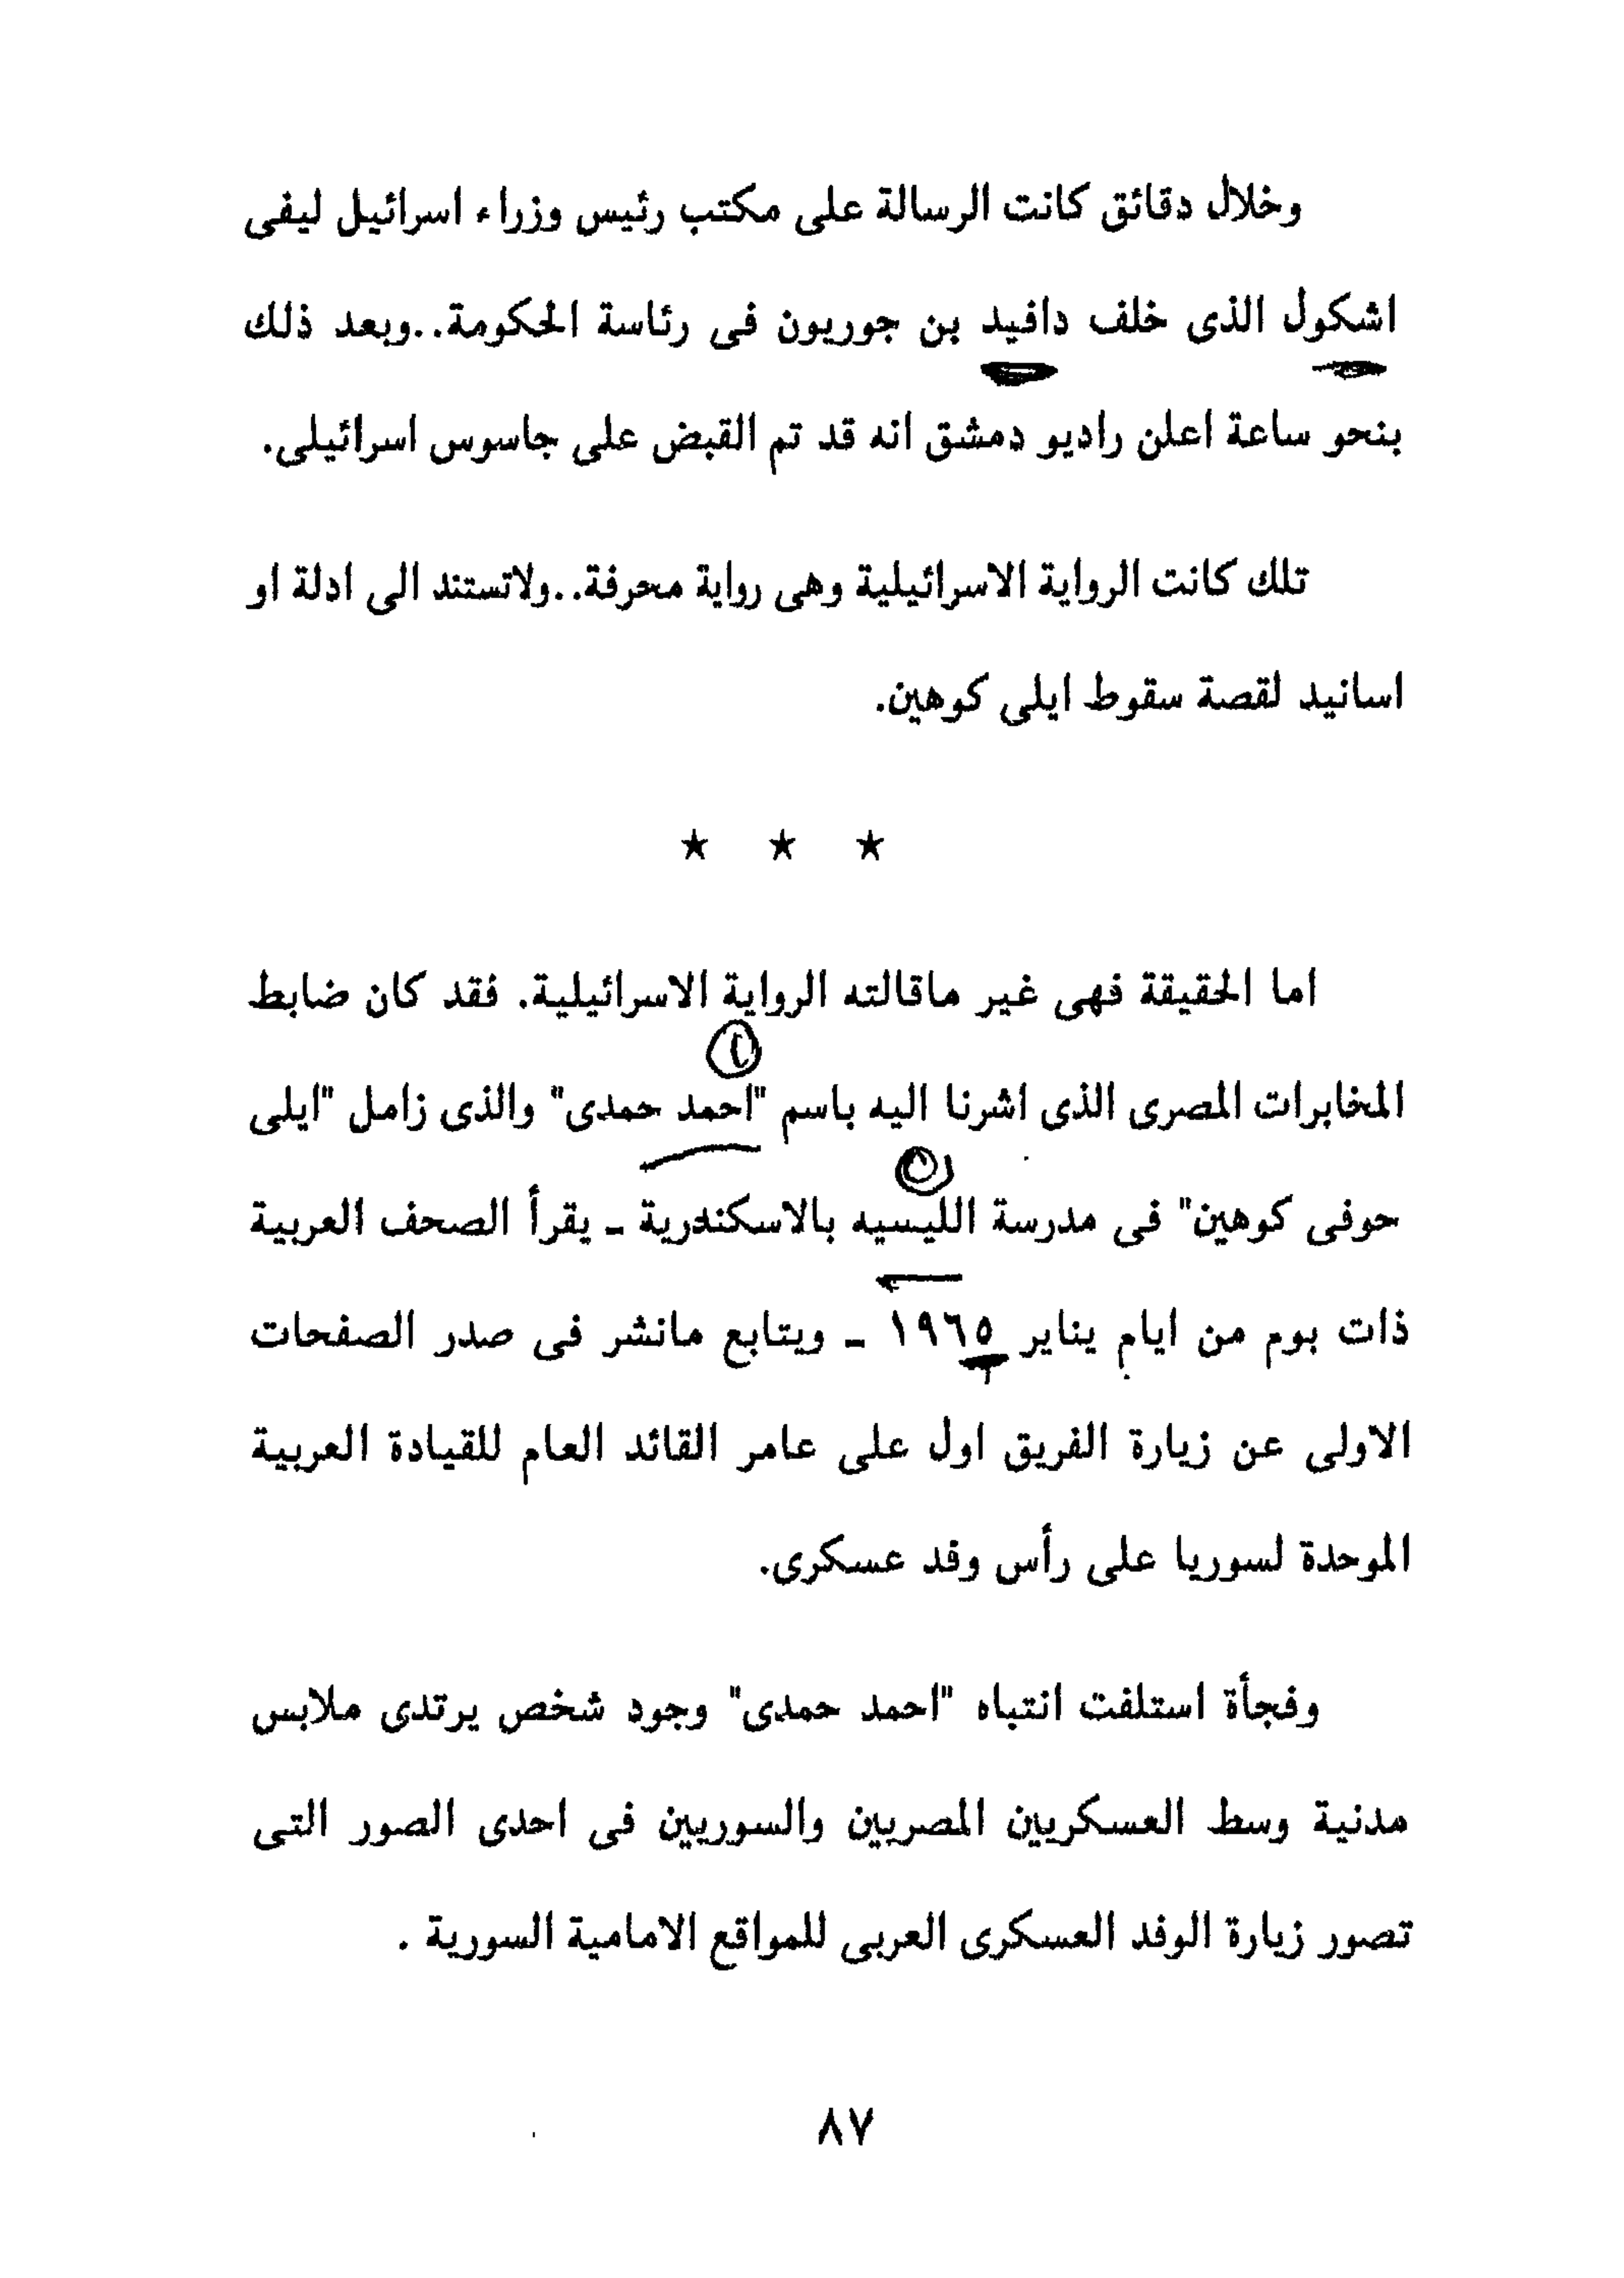 وخلال دقائق كانت الرسالة على مكتب رئيس وزراء اسرائيل ليفى
اشكول الذى خلف دافيد بن جوريون فى رئاسة الحكومة..وبعد ذلك
بنحو ساعة اعلن راديو دمشق انه قد تم القبض على جاسوس اسرائيلى.
تلك كانت الرواية الاسرائيلية وهى رواية محرفة..ولاتستند الى ادلة او
اسانيد لقصة سقوط ايلى كوهين.
★ ★ ★
اما الحقيقة فهى غير ماقالته الرواية الاسرائيلية. فقد كان ضابط
المخابرات المصرى الذى اشرنا اليه باسم "احمد حمدى" والذى زامل "ايلى
حوفى كوهين" فى مدرسة الليسيه بالاسكندرية ـ يقرأ الصحف العربية
ذات بوم من ايام يناير ١٩٦٥ ـ ويتابع مانشر فى صدر الصفحات
الاولى عن زيارة الفريق اول على عامر القائد العام للقيادة العربية
الموحدة لسوريا على رأس وفد عسكرى.
وفجأة استلفت انتباه "احمد حمدى" وجود شخص يرتدى ملابس
مدنية وسط العسكريين المصريين والسوريين فى احدى الصور التى
تصور زيارة الوفد العسكرى العربى للمواقع الامامية السورية .
٨٧